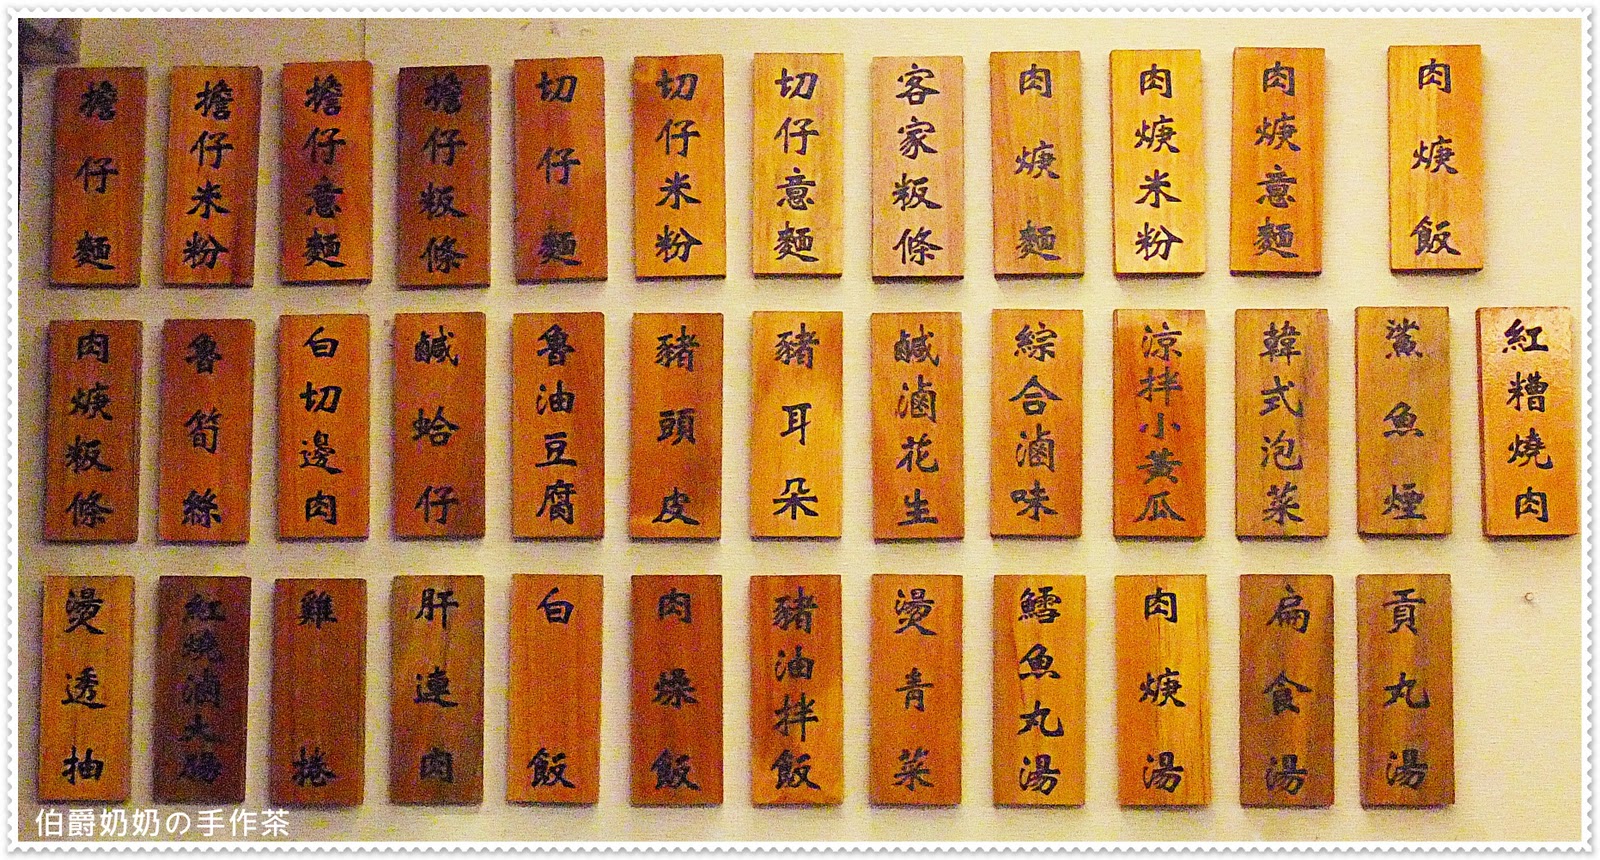 擔仔麵
擔仔米粉
擔仔意麵
擔仔粄條
切仔麵
切仔米粉
切仔意麵
客家粄條
肉焿麵
肉焿米粉
肉焿意麵
肉焿飯
肉焿粄條
魯筍絲
白切邊肉
鹹蛤仔
魯油豆腐
豬頭皮
豬耳朵
鹹滷花生
綜合滷味
涼拌小黃瓜
韓式泡菜
鯊魚煙
紅糟燒肉
燙透抽
紅燒滷大腸
雞捲
肝連肉
白飯
肉燥飯
豬油拌飯
燙青菜
鱈魚丸湯
肉焿湯
扁食湯
貢丸湯
伯爵奶奶の手作茶